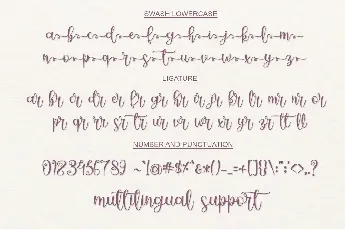 SWASH LOWERCASE
a b c d e f g h i j k l m
n o p q r s t u v w x y z
LIGATURE
ar br cr dr er fr gr hr ir jr kr lr mr nr or
pr qr rr sr tr ur vr wr xr yr zr tt ll
NUMBER AND PUNCTUATION
0123456789 ~`!@#$%^&*()-_=+[]{}\:";'<>,.?
multilingual support